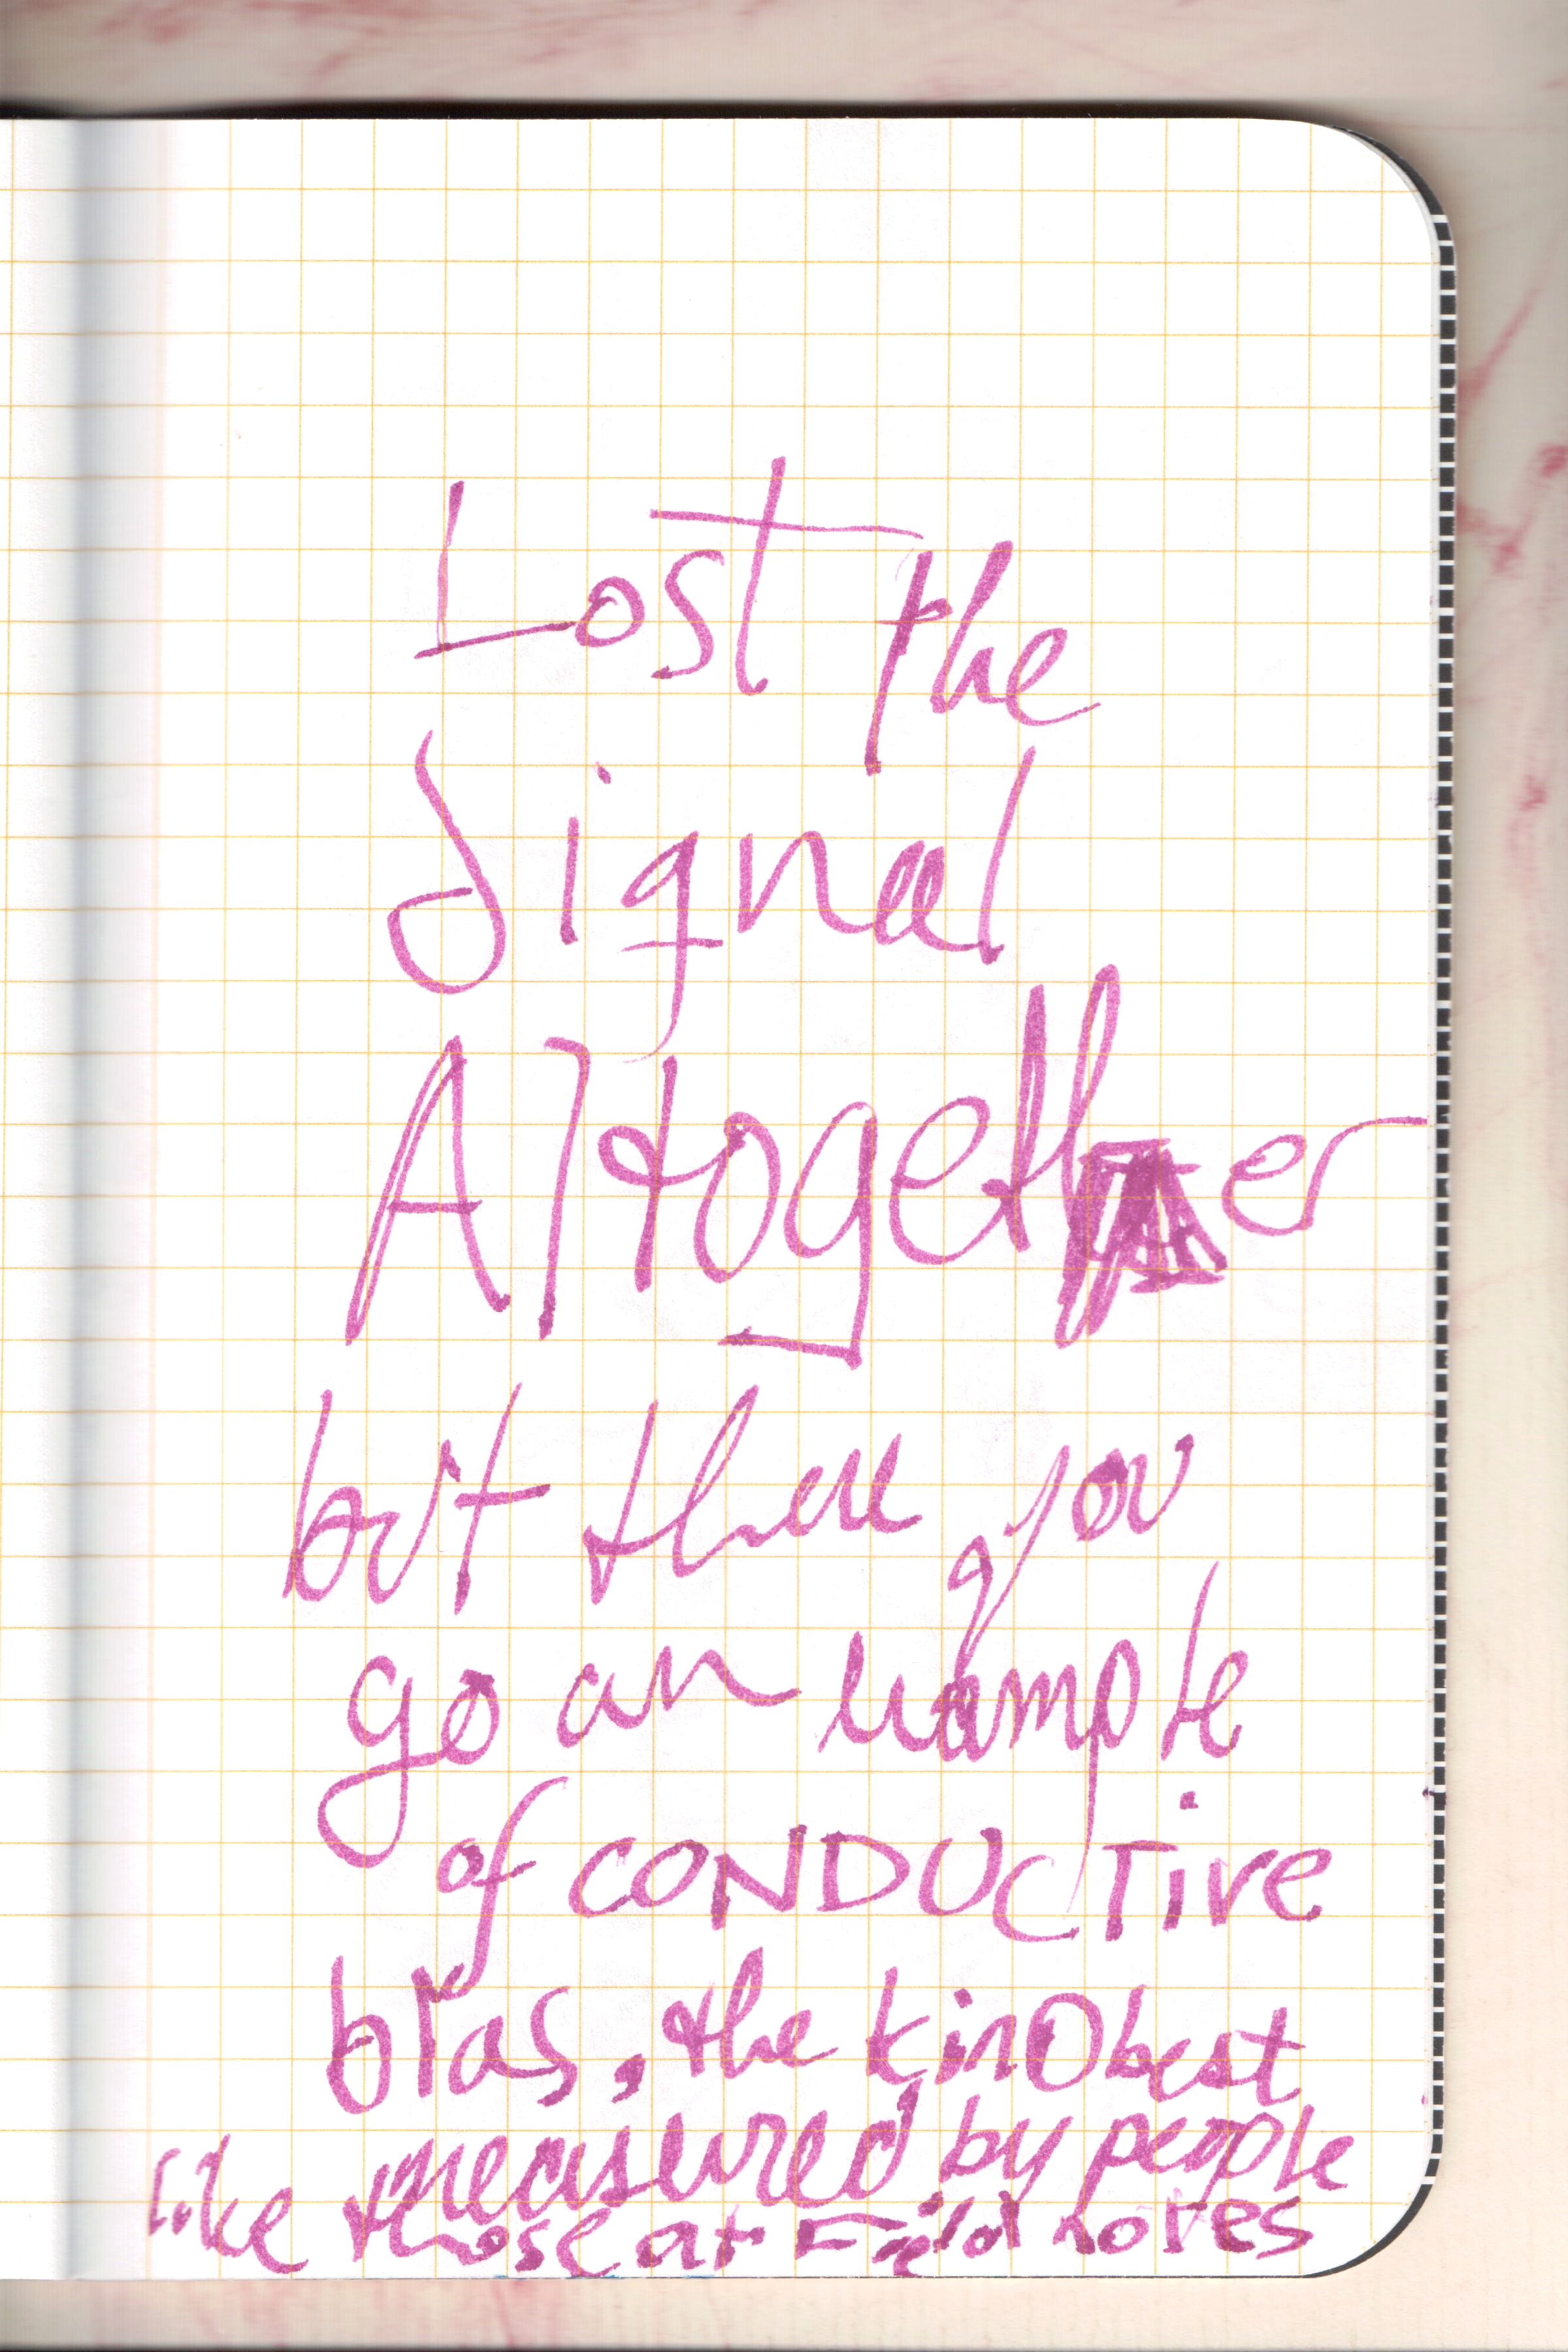 Lost the
Signal
Altogether
but there you
go an example
of CONDUCTive
bias, the kind best
measured by people
like those at Field notes